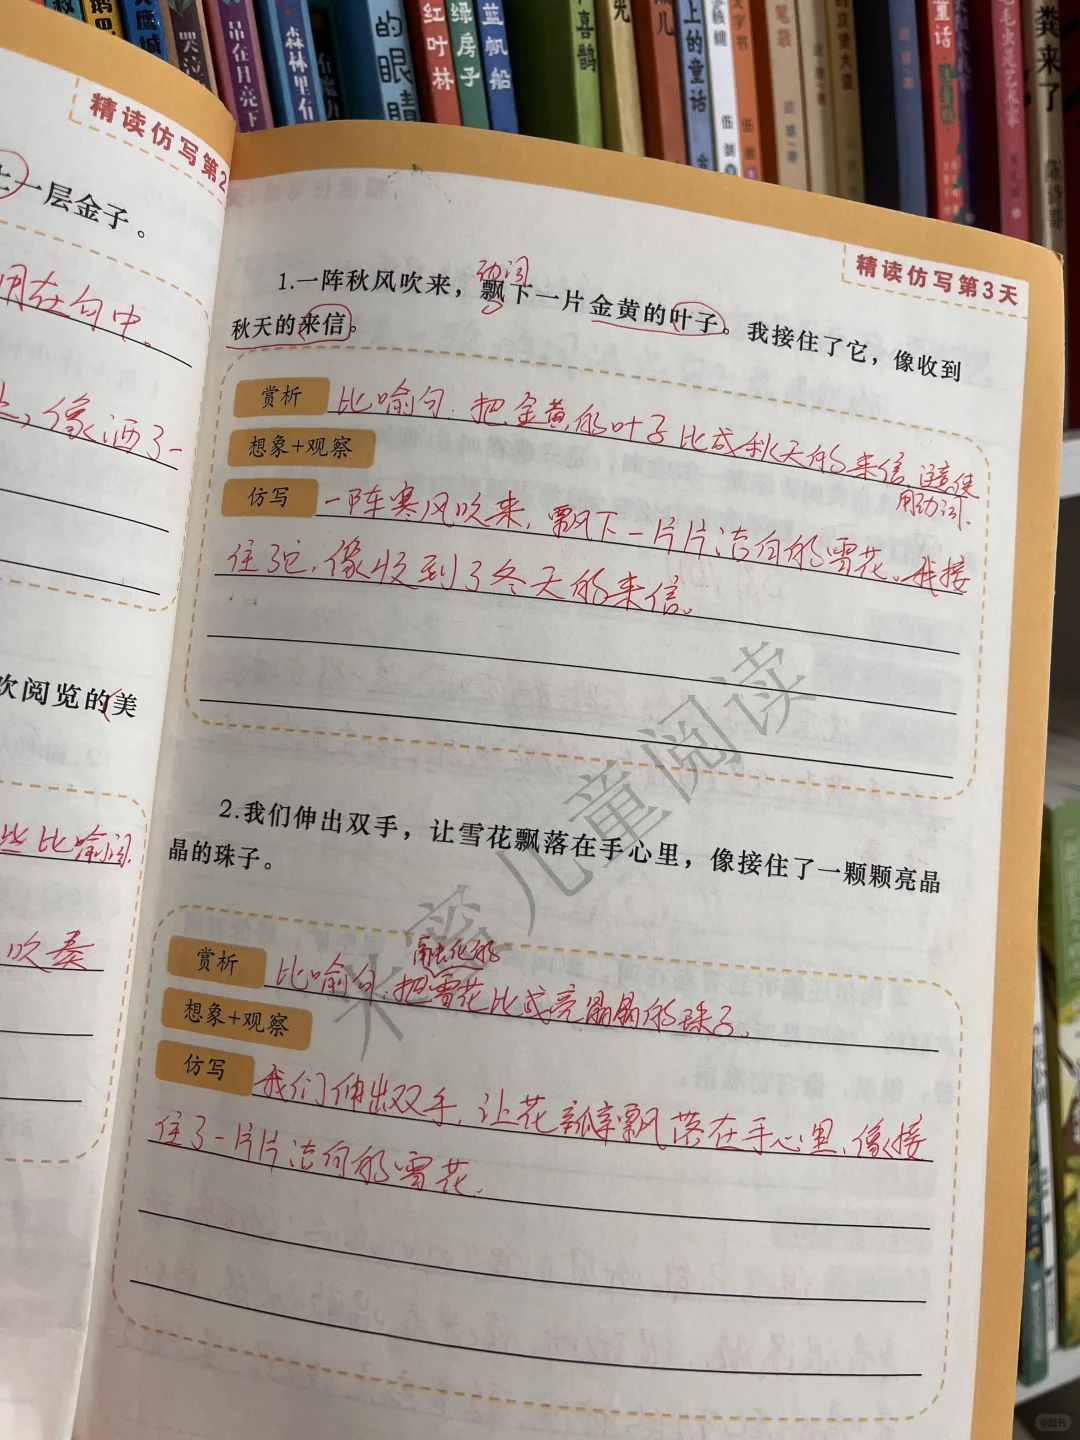 哭泣
吊在月亮下
森林里有
的眼睛
红叶林
绿房子
蓝帆船
喜鹊
光
儿
上的童话
笔袋
童话
毛毛虫是艺术家
粪来了
精读仿写第2
一层金子。
用在句中。
像洒了一
欢阅览的美
些比喻词.
吹奏
精读仿写第3天
动词
1.一阵秋风吹来，飘下一片金黄的叶子。我接住了它，像收到
秋天的来信。
赏析 比喻句.把金黄的叶子比成秋天的来信 注意使
用动词.
想象+观察
仿写 一阵寒风吹来,飘下一片片洁白的雪花。我接
住了它,像收到了冬天的来信。
2.我们伸出双手，让雪花飘落在手心里，像接住了一颗颗亮晶
晶的珠子。
融化的
赏析 比喻句.把雪花比成亮晶晶的珠子.
想象+观察
仿写 我们伸出双手,让花瓣飘落在手心里,像接
住了一片片洁白的雪花.
米蕾儿童阅读
小红书